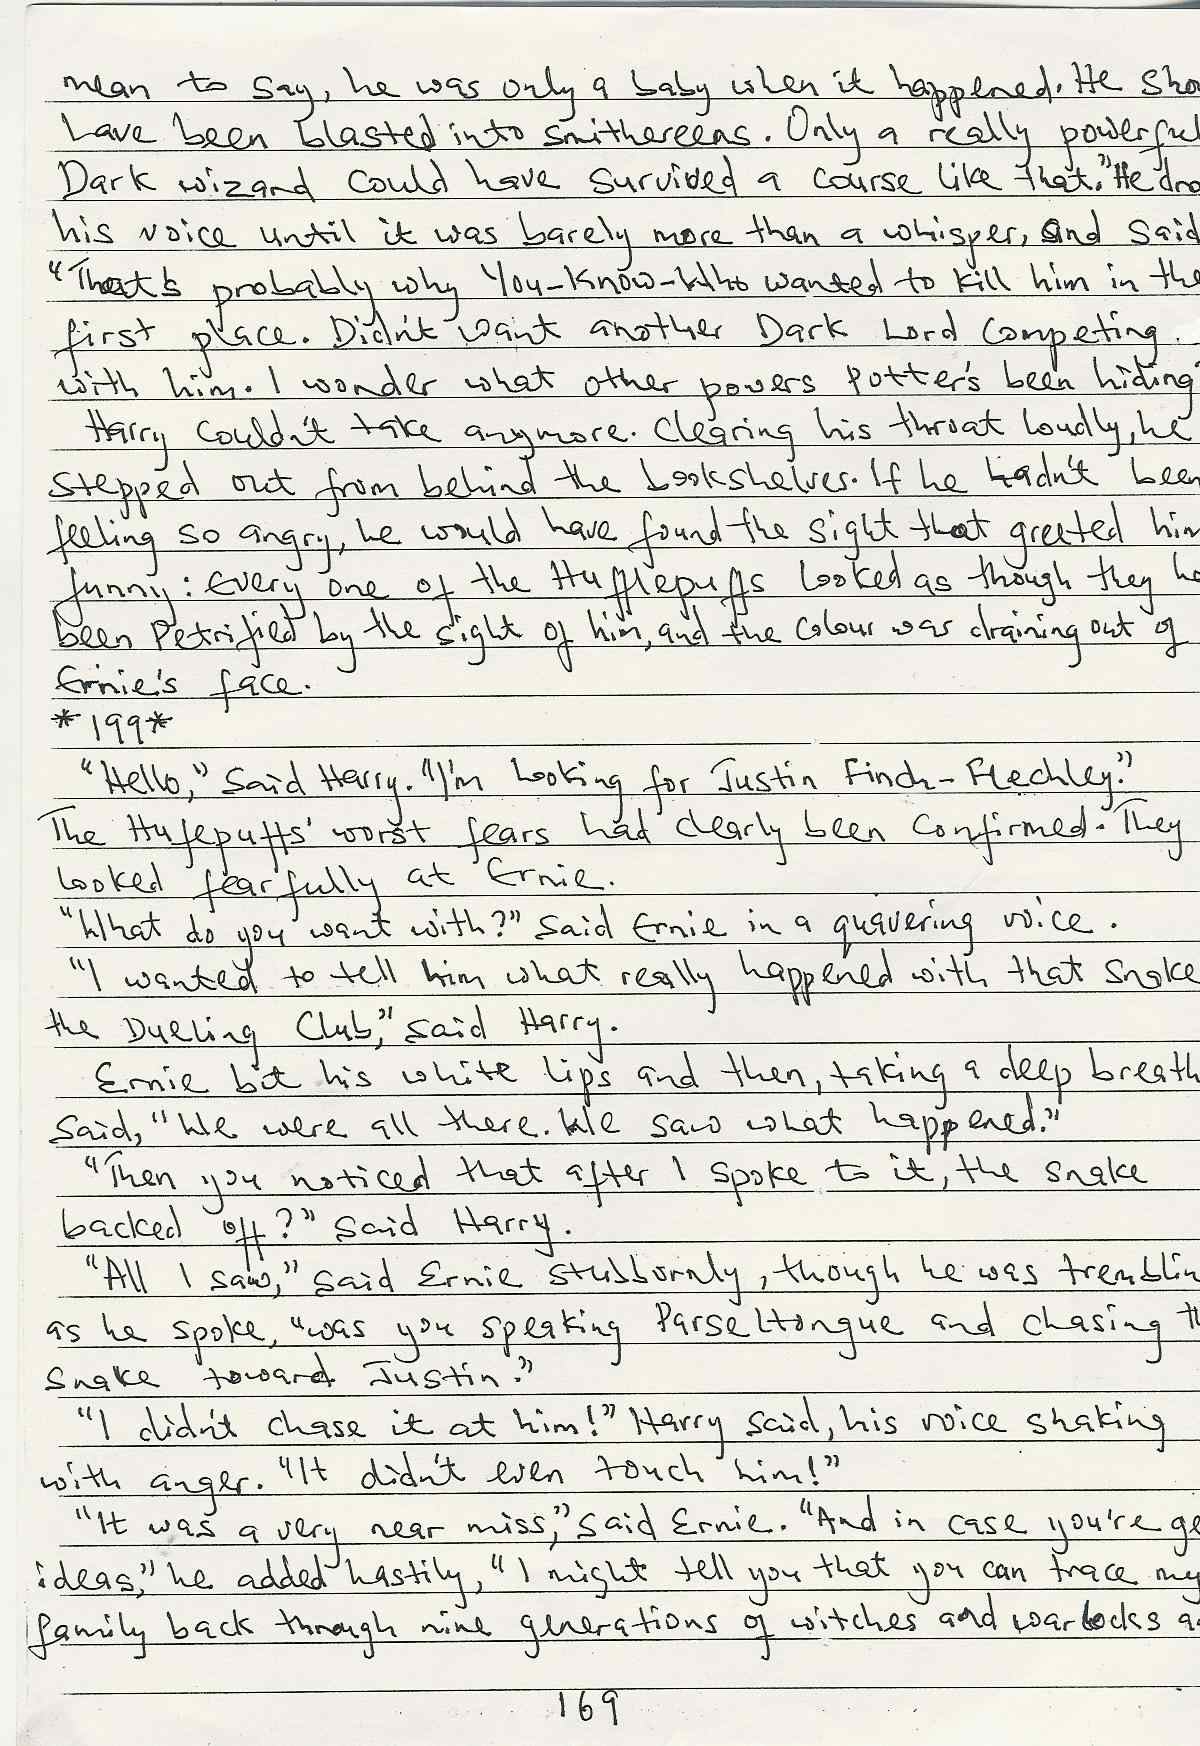 mean to say, he was only a baby when it happened. He sho
have been blasted into smithereens. Only a really powerful
Dark wizard could have survived a course like that." He dro
his voice until it was barely more than a whisper, and said
"That's probably why You-Know-Who wanted to kill him in the
first place. Didn't want another Dark Lord Competing
with him. I wonder what other powers Potter's been hiding"
Harry couldn't take anymore. Clearing his throat loudly, he
stepped out from behind the bookshelves. If he hadn't been
feeling so angry, he would have found the sight that greeted him
funny: every one of the Hufflepuffs looked as though they ha
been Petrified by the sight of him, and the colour was draining out of
Ernie's face.
*199*
"Hello," said Harry. "I'm looking for Justin Finch-Flechley."
The Hufepuffs' worst fears had clearly been confirmed. They
looked fearfully at Ernie.
"What do you want with?" said Ernie in a quavering voice.
"I wanted to tell him what really happened with that snake
the Dueling Club," said Harry.
Ernie bit his white lips and then, taking a deep breath
said, "We were all there. We saw what happened."
"Then you noticed that after I spoke to it, the snake
backed off?" said Harry.
"All I saw," said Ernie stubbornly, though he was tremblin
as he spoke, "was you speaking Parseltongue and chasing th
snake toward Justin."
"I didn't chase it at him!" Harry said, his voice shaking
with anger. "It didn't even touch him!"
"It was a very near miss," said Ernie. "And in case you're ge
ideas," he added hastily, "I might tell you that you can trace my
family back through nine generations of witches and warlocks a
169